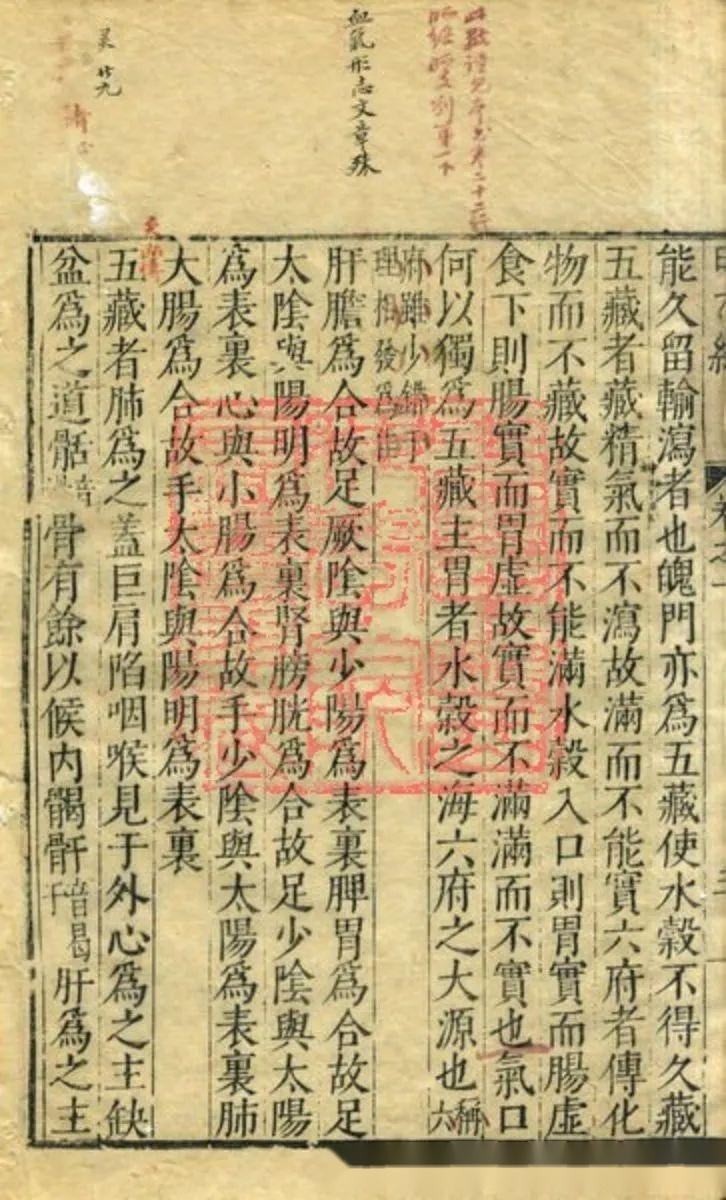 血氣形志文章殊
能久留輸瀉者也魄門亦爲五藏使水穀不得久藏
五藏者藏精氣而不瀉故滿而不能實六府者傳化
物而不藏故實而不能滿水穀入口則胃實而腸虛
食下則腸實而胃虛故實而不滿滿而不實也氣口
何以獨爲五藏主胃者水穀之海六府之大源也稱六
府雖少錯于
理相發爲佳
肝膽爲合故足厥陰與少陽爲表裏脾胃爲合故足
太陰與陽明爲表裏腎膀胱爲合故足少陰與太陽
爲表裏心與小腸爲合故手少陰與太陽爲表裏肺
大腸爲合故手太陰與陽明爲表裏
五藏者肺爲之蓋巨肩陷咽喉見于外心爲之主缺
盆爲之道骷骨有餘以候內髑骬音曷于肝爲之主